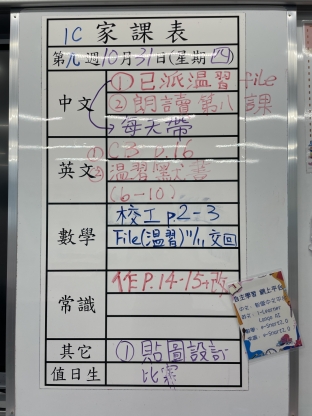 1C 家課表
第九週10月31日(星期四)
中文
①已派溫習file
②朗讀第八課
每天帶
英文
① C3 p.16
② 溫習默書
(6-10)
數學
校工 p.2-3
File(溫習)11/11交回
常識
作P.14-15+改
自主學習 網上平台
其它
① 貼圖設計
比賽
值日生